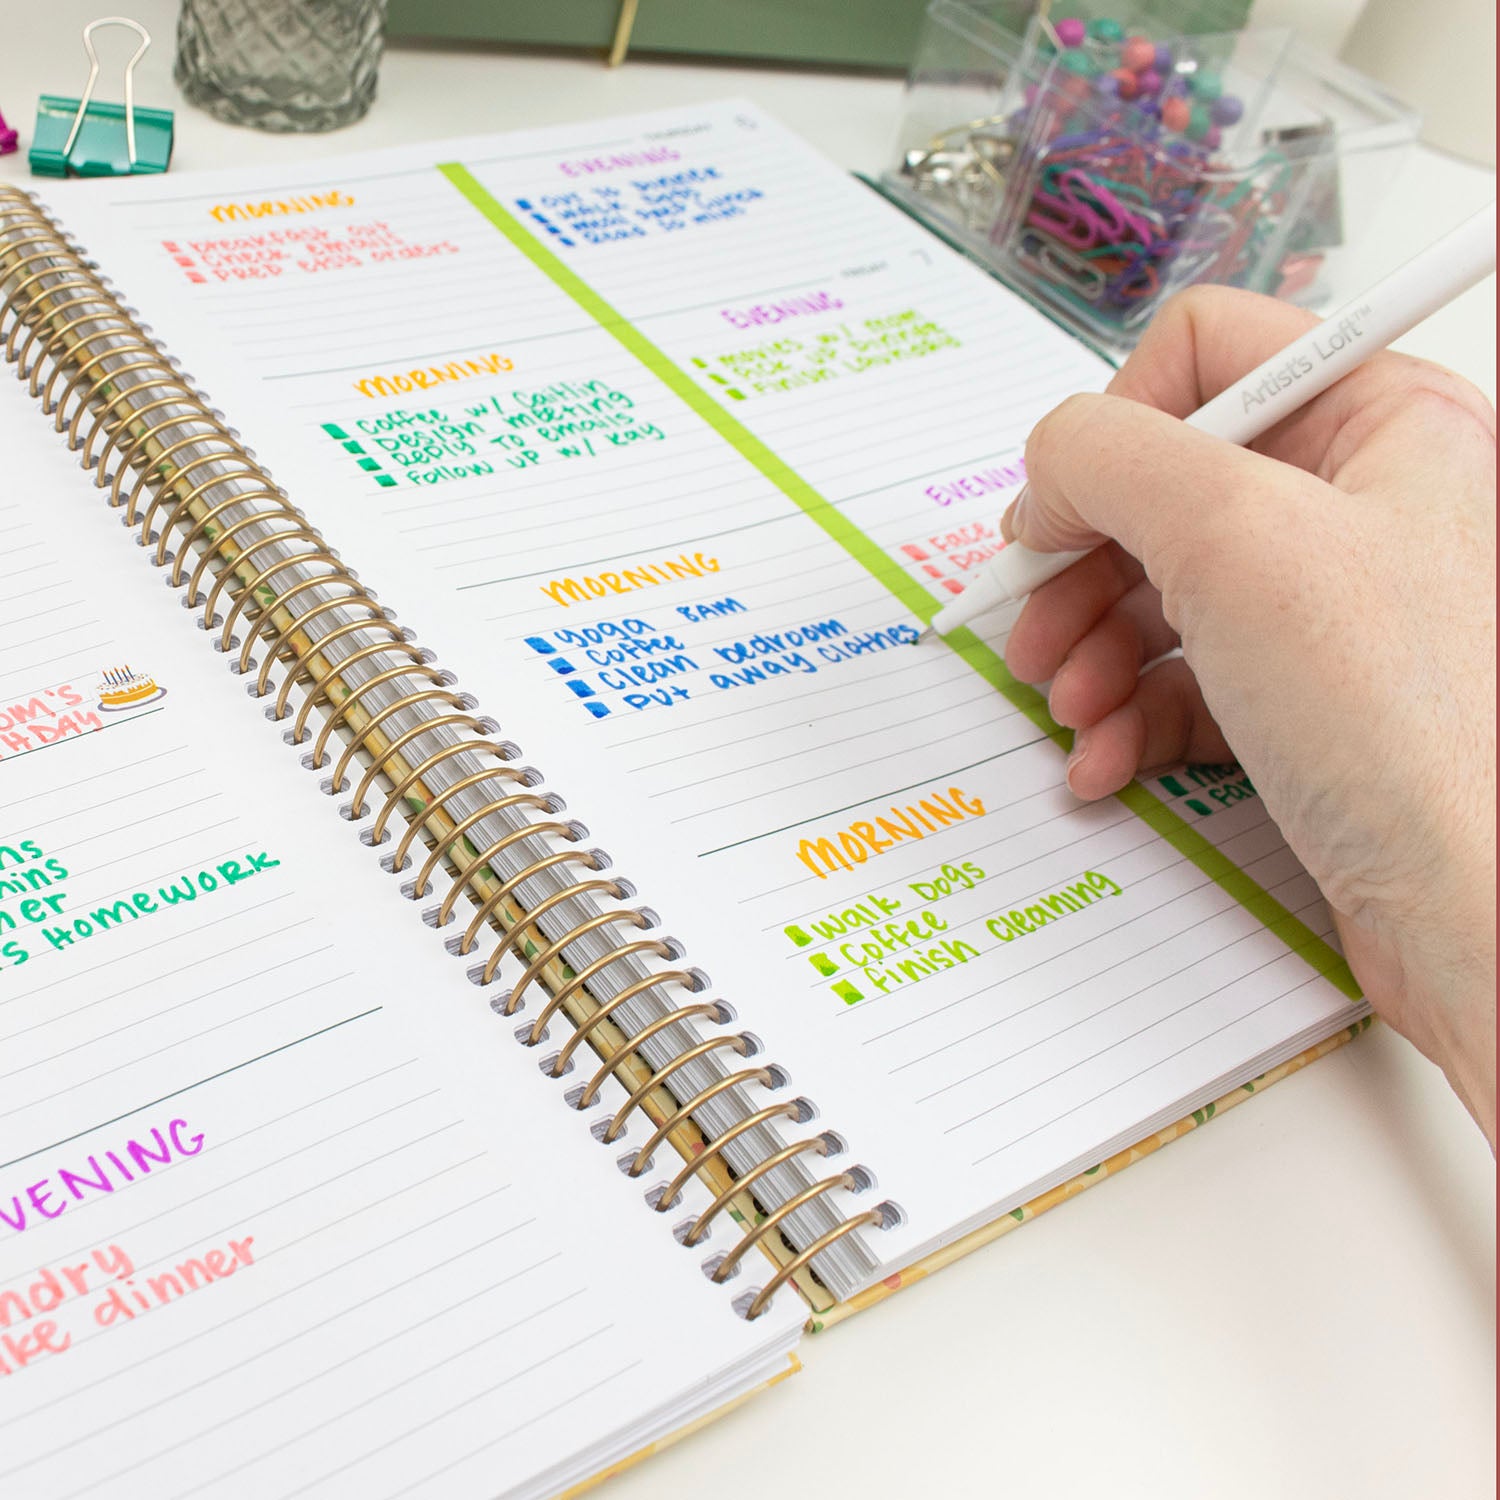 THURSDAY 6
MORNING
breakfast out
Check emails
PREP etsy orders
EVENING
OUT TO DINNER
WALK DOGS
MEAL PREP LUNCH
Read 20 mins
FRIDAY 7
MORNING
Coffee w/ Caitlin
Design meeting
Reply to emails
Follow up w/ Kay
EVENING
movies w/ mom
Pick up dinner
Finish Laundry
MORNING
Yoga 8AM
Coffee
Clean bedroom
Put away Clothes
EVENIN
Face
MORNING
Walk Dogs
Coffee
Finish cleaning
OM'S
HDAY
ns
mins
ner
's Homework
VENING
ndry
ke dinner
Artist's Loft™